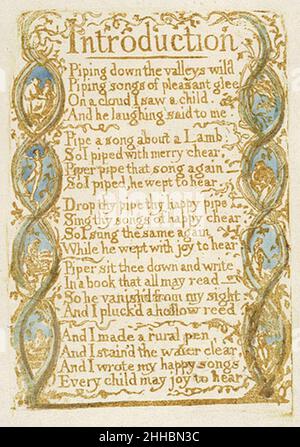 Introduction
Piping down the valleys wild
Piping songs of pleasant glee
On a cloud I saw a child.
And he laughing said to me.
Pipe a song about a Lamb;
So I piped with merry chear,
Piper pipe that song again
So I piped, he wept to hear.
Drop thy pipe thy happy pipe
Sing thy songs of happy chear
So I sung the same again
While he wept with joy to hear
Piper sit thee down and write
In a book that all may read
So he vanish'd from my sight
And I pluck'd a hollow reed
And I made a rural pen,
And I stain'd the water clear,
And I wrote my happy songs
Every child may joy to hear
alamy
Image ID: 2HHBN3C
www.alamy.com